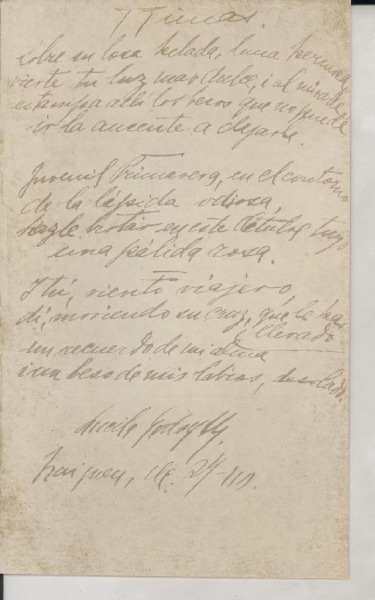 Rimas.
sobre su losa helada, luna hermosa
vierte tu luz mas dulce, i al mirarte
estampa alli los besos que no puede
ir la ausente a dejarle.
Juvenil Primavera, en el contorno
de la lápida odiosa,
hazle brotar en este Octubre tuyo
una pálida rosa.
I tú, viento viajero
di, moviendo su cruz, que le has
llevado
un recuerdo de mi alma
i un beso de mis labios, desolado.
Lucila Godoy A.
Traiguen, Oc.